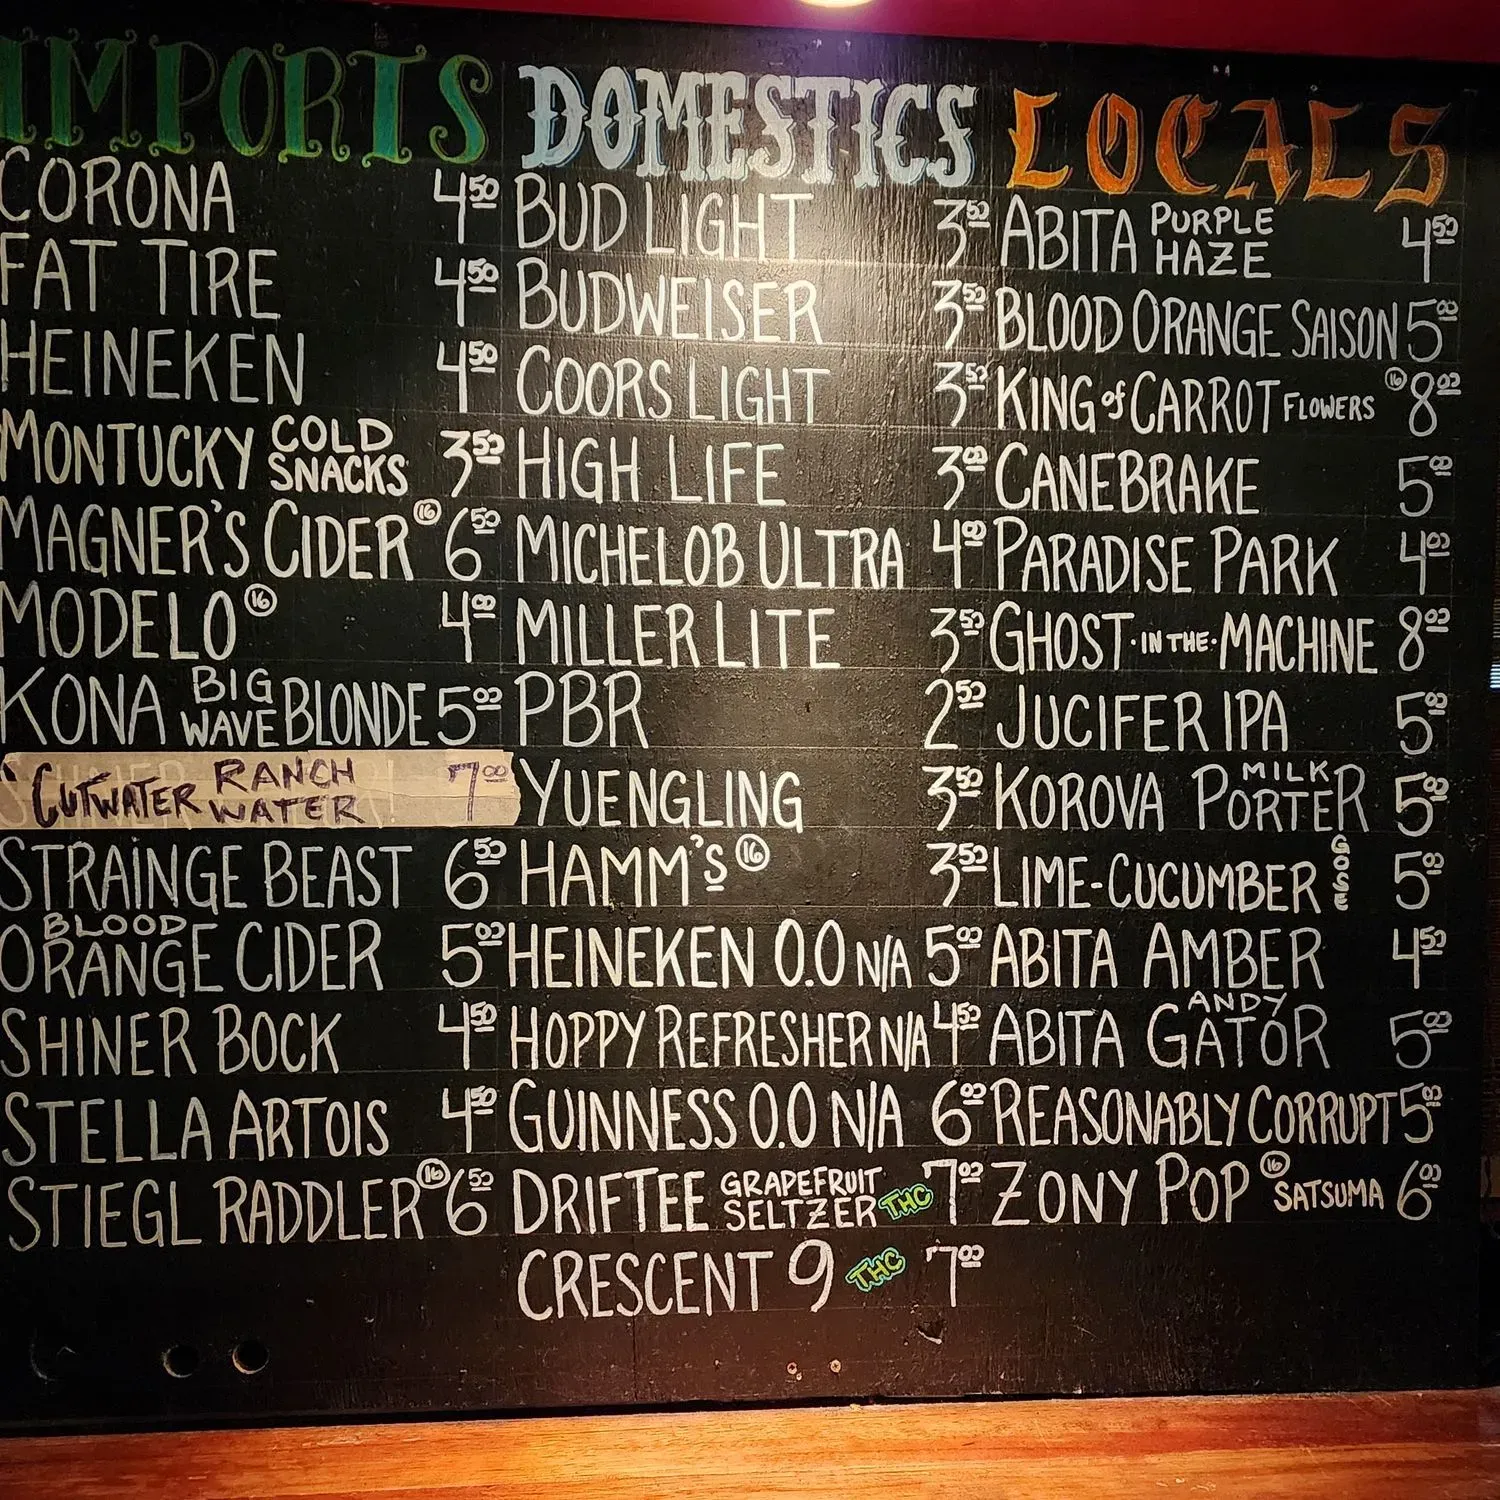 IMPORTS
CORONA 4.50
FAT TIRE 4.50
HEINEKEN 4.50
MONTUCKY COLD SNACKS 3.50
MAGNER'S CIDER 16 6.50
MODELO 16 4.00
KONA BIG WAVE BLONDE 5.00
CUTWATER RANCH WATER 7.00
STRAINGE BEAST 6.50
BLOOD ORANGE CIDER 5.00
SHINER BOCK 4.50
STELLA ARTOIS 4.50
STIEGL RADDLER 16 6.50
DOMESTICS
BUD LIGHT 3.50
BUDWEISER 3.50
COORS LIGHT 3.50
HIGH LIFE 3.00
MICHELOB ULTRA 4.00
MILLER LITE 3.50
PBR 2.50
YUENGLING 3.50
HAMM'S 16 3.50
HEINEKEN 0.0 N/A 5.00
HOPPY REFRESHER N/A 4.50
GUINNESS 0.0 N/A 6.00
DRIFTEE GRAPEFRUIT SELTZER THC 7.00
CRESCENT 9 THC 7.00
LOCALS
ABITA PURPLE HAZE 4.50
BLOOD ORANGE SAISON 5.00
KING of CARROT FLOWERS 16 8.00
CANEBRAKE 5.00
PARADISE PARK 4.00
GHOST·IN THE·MACHINE 8.00
JUCIFER IPA 5.00
KOROVA MILK PORTER 5.00
LIME-CUCUMBER GOSE 5.00
ABITA AMBER 4.50
ABITA ANDY GATOR 5.00
REASONABLY CORRUPT 5.00
ZONY POP 16 SATSUMA 6.00